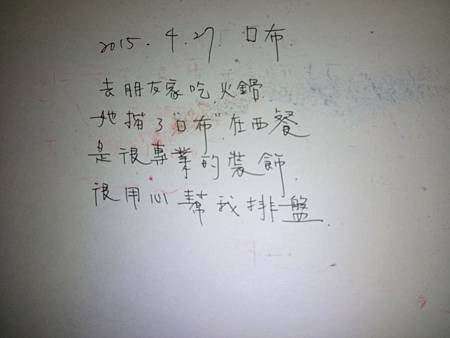 2015.4.27 口布
去朋友家吃火鍋
她摺了"口布"在西餐
是很專業的裝飾
很用心幫我排盤